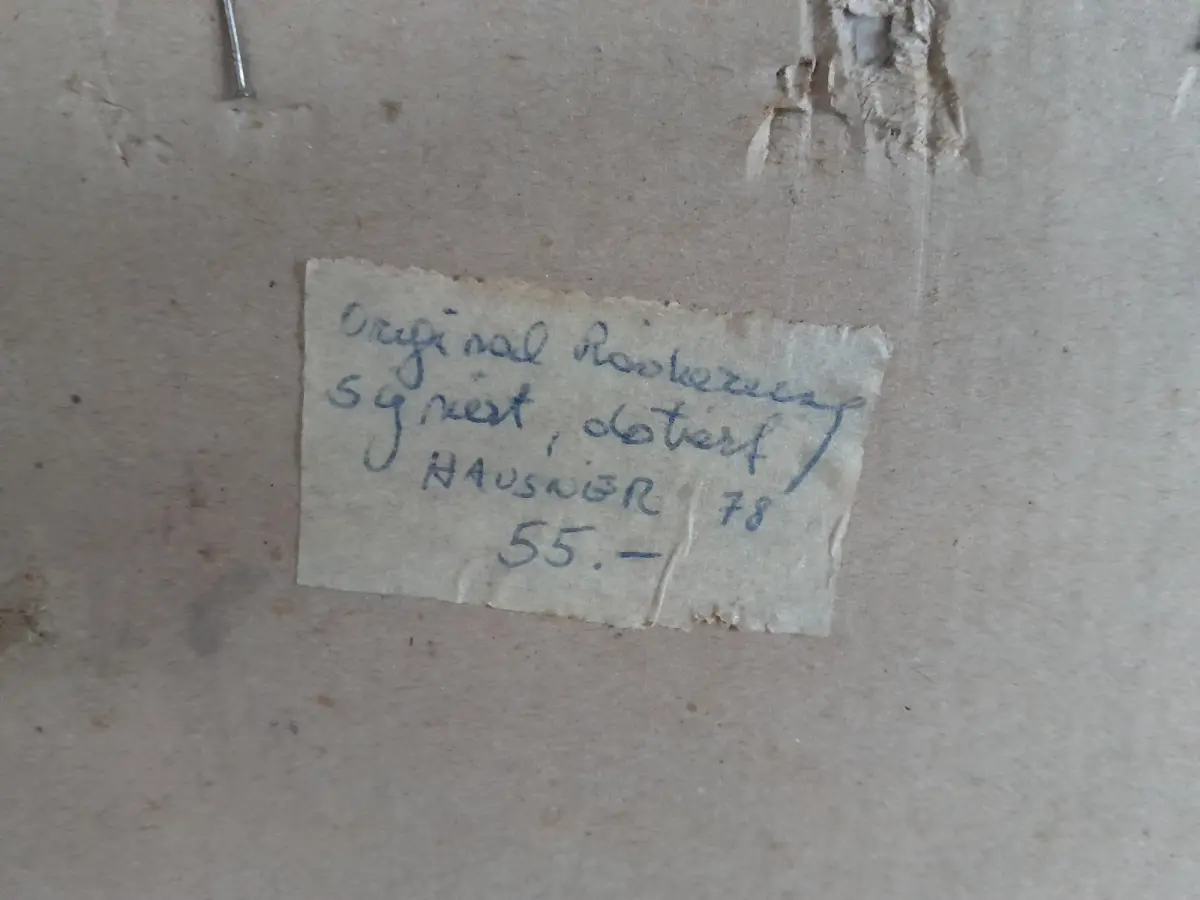 Original Radierung
signiert, datiert
HAUSNER 78
55.-